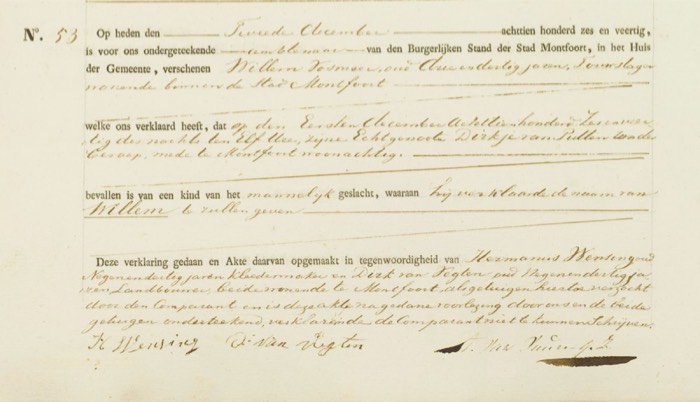 N°. 53 Op heden den Tweede December achttien honderd zes en veertig,
is voor ons ondergeteekende ambtenaar van den Burgerlijken Stand der Stad Montfoort, in het Huis
der Gemeente, verschenen Willem Vosmeer, oud Drieendertig jaren, Touwslager
wonende binnen de Stad Montfoort
welke ons verklaard heeft, dat op den Eersten December Achttienhonderd Zes en veer
tig des nachts ten Elf Ure, zijne Echtgenoote Dirkje van Pullen zonder
beroep, mede te Montfoort woonachtig.
bevallen is van een kind van het mannelijk geslacht, waaraan hij verklaarde de naam van
Willem te zullen geven
Deze verklaring gedaan en Akte daarvan opgemaakt in tegenwoordigheid van Hermanus Wensing oud
Negenendertig jaren Kledermaker en Dirk van Vegten oud Negenendertig ja
ren, Landbouwer, beide wonende te Montfoort, als getuigen hiertoe verzocht
door den Comparant en is deze akte na gedane voorlezing door ons en de beide
getuigen onderteekend, verklarende de Comparant niet te kunnen Schrijven.
H Wensing D van Vegten